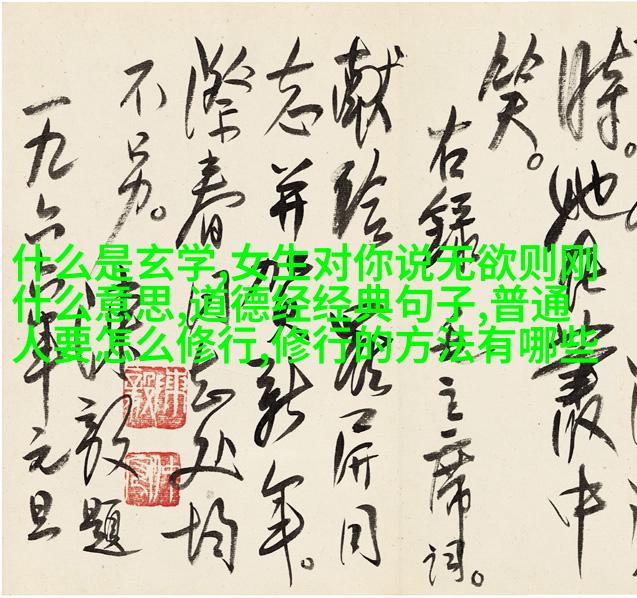 什么是玄学,女生对你说无欲则刚
什么意思,道德经经典句子,普通
人要怎么修行,修行的方法有哪些
時。她在叢中
笑。
右録毛主席词。
献给屏同
志并贺新年。
際春同志处均
不另。
陳毅題
一九六六年元旦